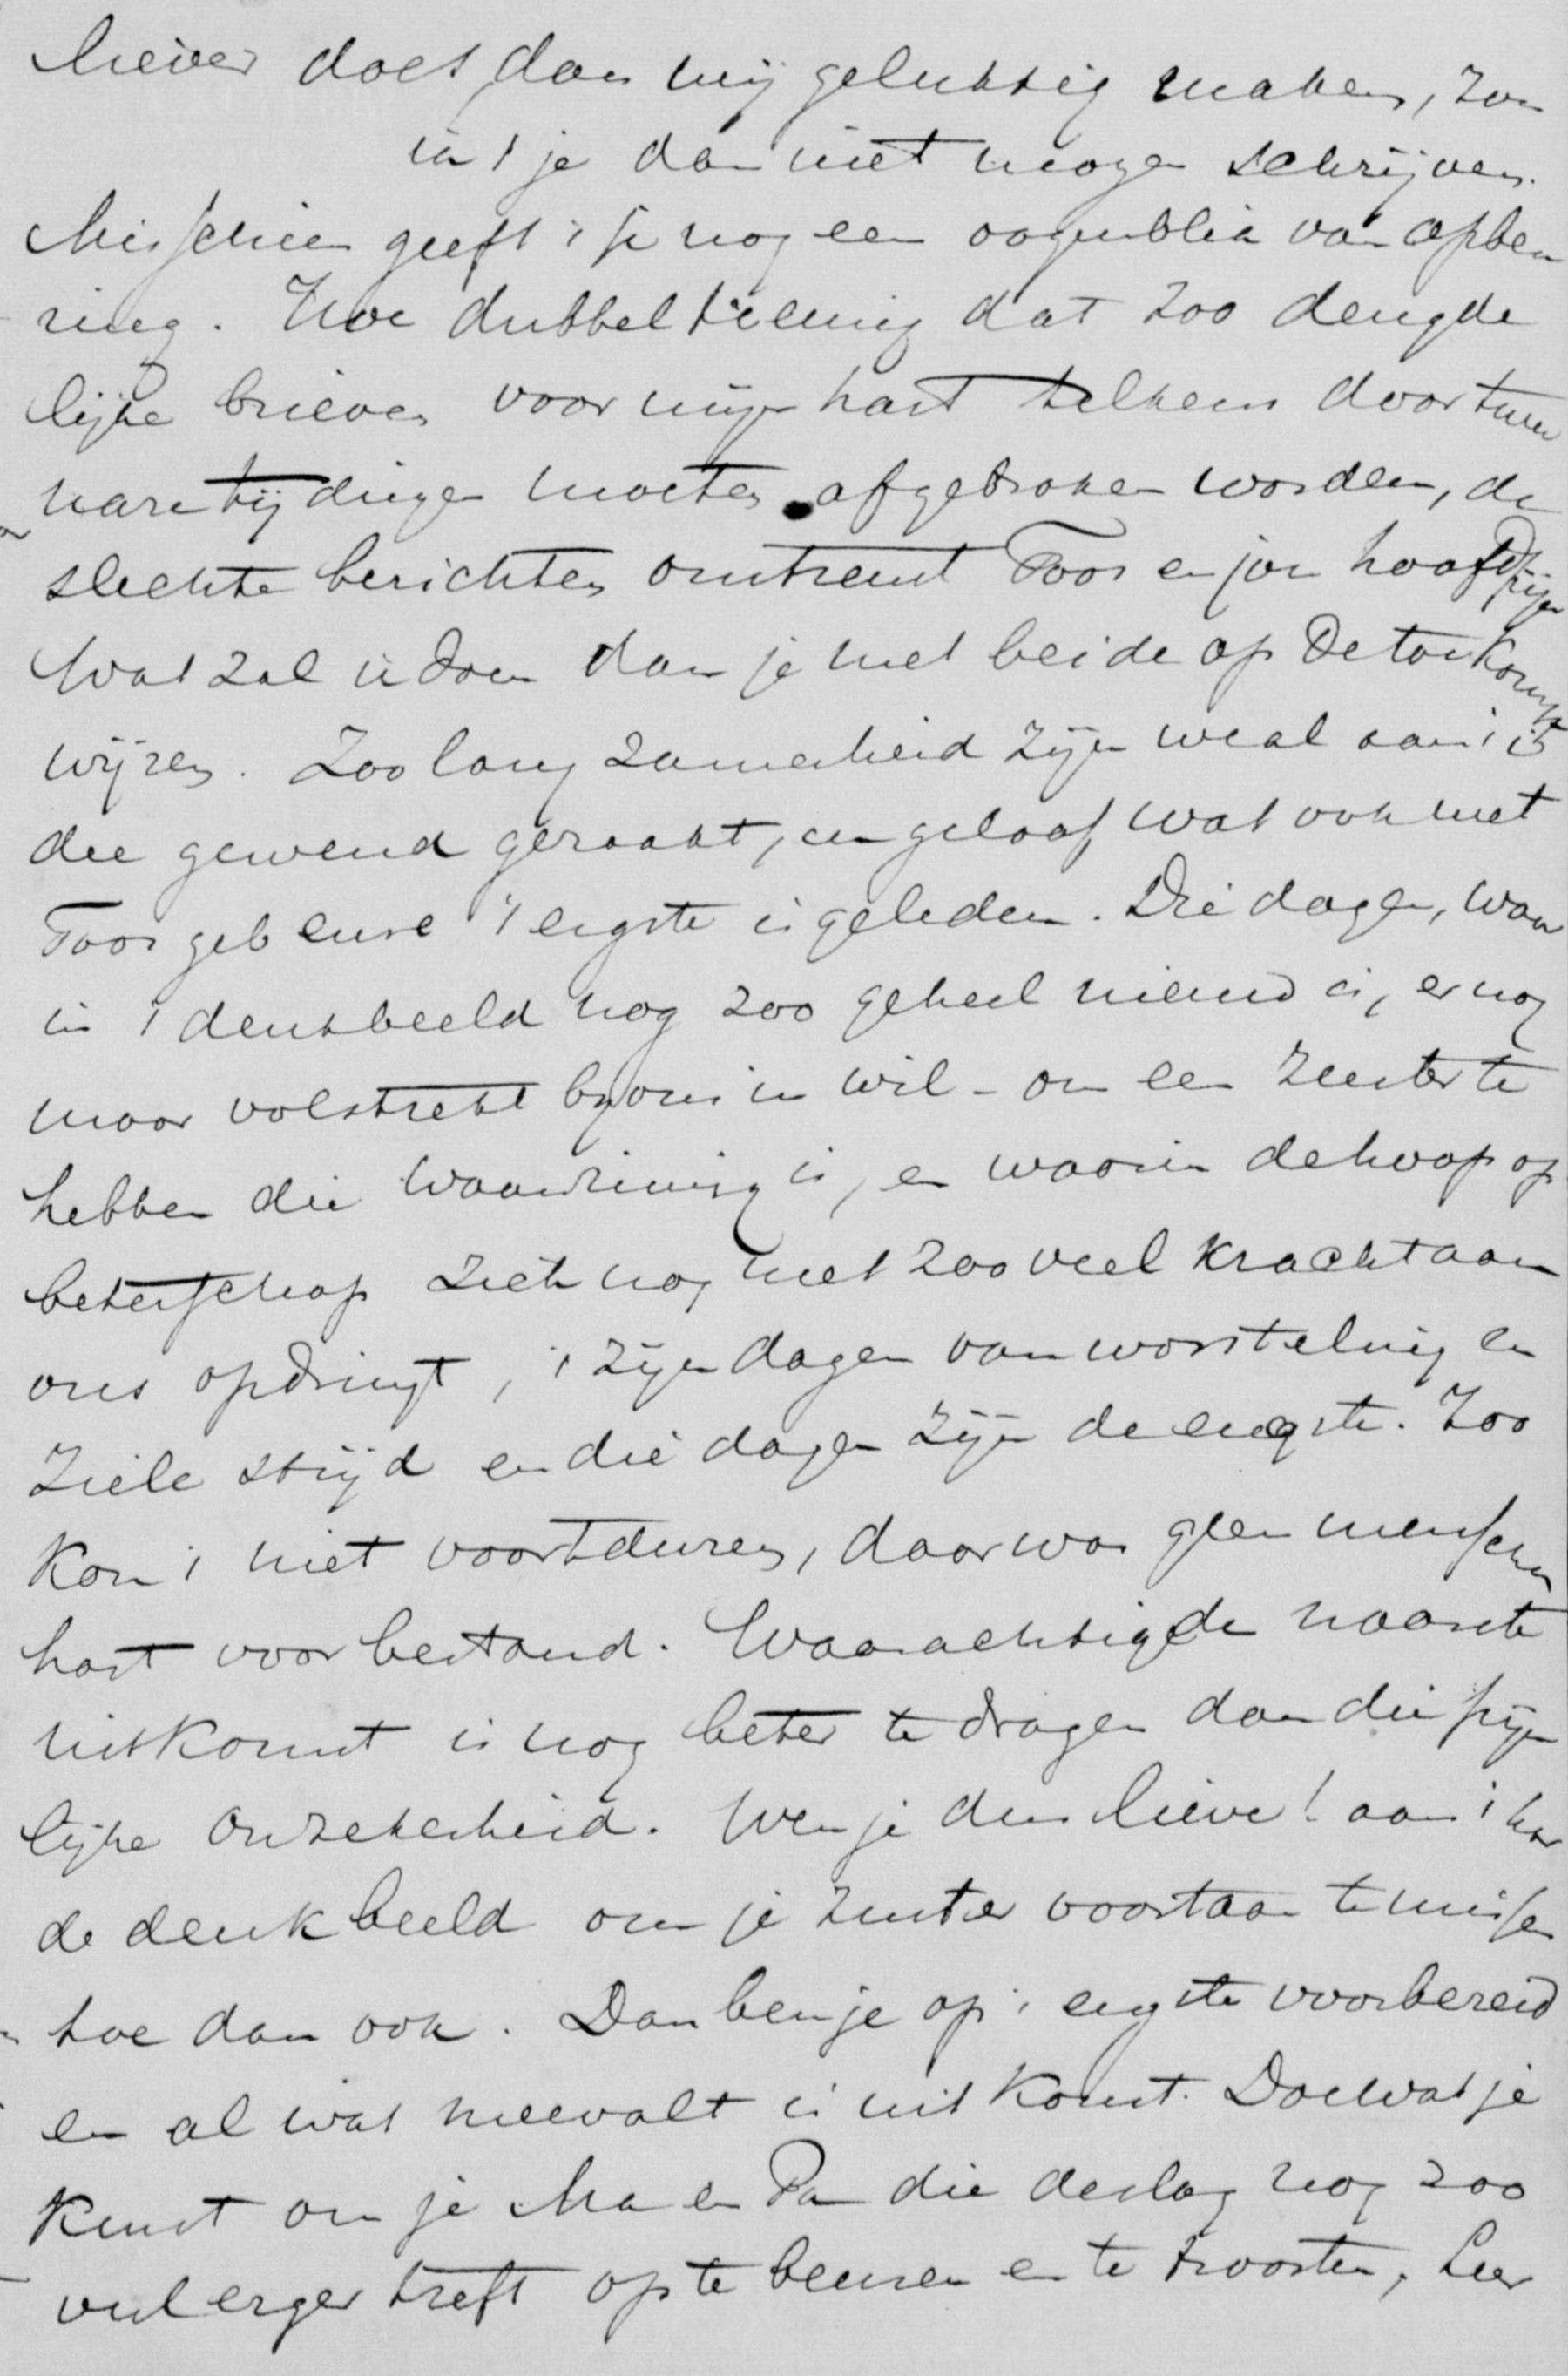 liever doet dan mij gelukkig maken, zou
ik 't je dan niet mogen schrijven.
Misschien geeft 't je nog een oogenblik van opbeu
ring. Hoe dubbel treurig dat zoo deugde
lijke brieven voor mijn hart telkens door
nare tijdingen moeten afgebroken worden, de
slechte berichten omtrent Toos en jou hoofdpijn
Wat zal ik doen dan je met beide op De toekomst
wijzen. Zoo lang zamerheid zijn we al aan 't
dee gewend geraakt, en geloof, wat ook met
Toos gebeure 't ergste is geleden. Die dagen, waar
in 't denkbeeld nog zoo geheel nieuw is, er nog
maar volstrekt bij ons in wil - om een zuster te
hebben die waanzinnig is, en waarin de hoop op
beterschap zich nog met zoo veel kracht aan
ons opdringt, 't zijn dagen van worsteling en
Ziele strijd en die dagen zijn de ergste. Zoo
kon 't niet voortduren, daar was geen menschen
hart voor bestand. Waarachtig de naarste
uitkomst is nog beter te dragen dan die pijn
lijke onzekerheid. Wen je dus lieve! aan 't har
de denkbeeld om je zuster voortaan te missen
hoe dan ook. Dan ben je op 't ergste voorbereid
en al wat meevalt is uitkomst. Doe wat je
kunt om je Ma en Pa die de slag nog zoo
veel erger treft op te beuren en te troosten, Leer